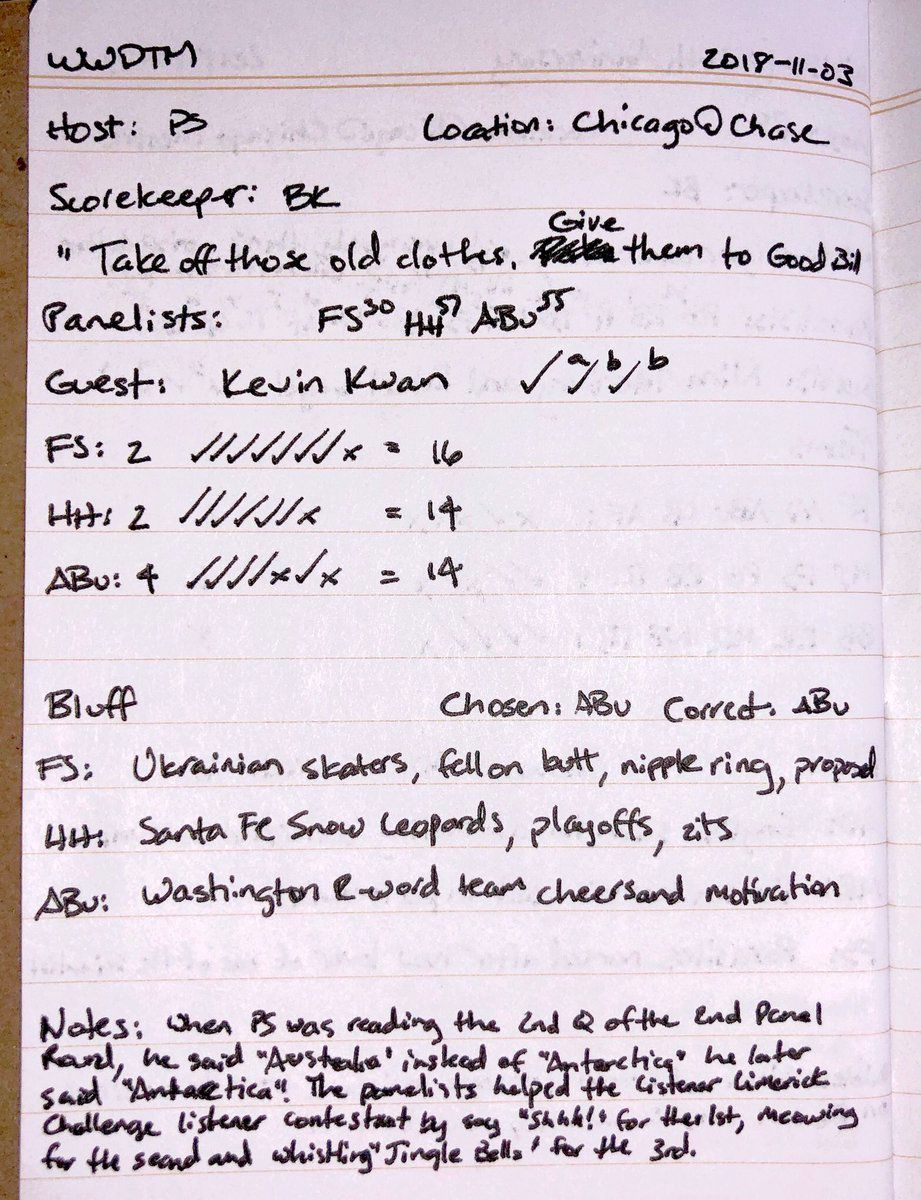 WWDTM 2018-11-03
Host: PS Location: Chicago@Chase
Scorekeeper: BK
Give
"Take off those old clothes. them to Good Bill
Panelists: FS30 HH57 ABu55
Guest: Kevin Kwan ✓ a✓ b✓ b
FS: 2 ✓✓✓✓✓✓✓x = 16
HH: 2 ✓✓✓✓✓✓x = 14
ABu: 4 ✓✓✓✓x✓x = 14
Bluff Chosen: ABu Correct: ABu
FS: Ukrainian skaters, fell on butt, nipple ring, proposal
HH: Santa Fe Snow Leopards, playoffs, zits
ABu: Washington R-word team cheersand motivation
Notes: When PS was reading the 2nd Q of the 2nd Panel
Round, he said "Australia" instead of "Antarctica" he later
said "Antarctica". The panelists helped the Listener Limerick
Challenge listener contestant by say "Shhh!" for the 1st, meowing
for the second and whistling "Jingle Bells" for the 3rd.